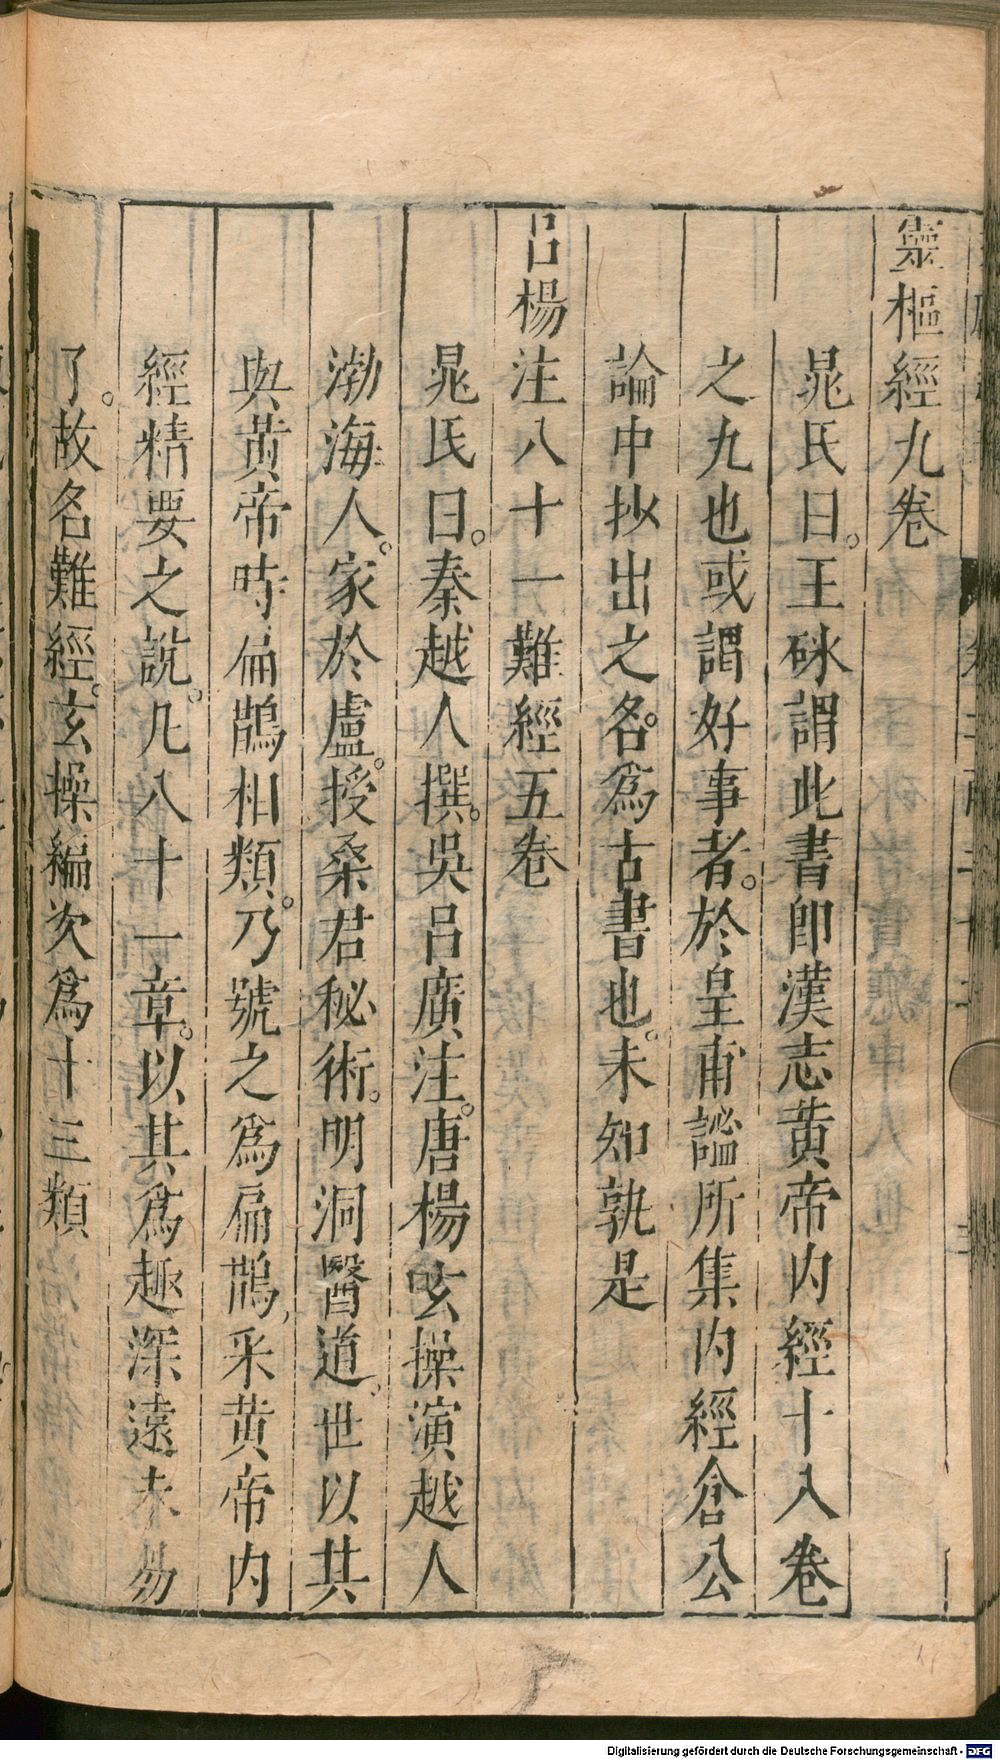 靈樞經九卷
晁氏曰。王砅謂此書即漢志黄帝内經十八卷
之九也或謂好事者。於皇甫謐所集内經倉公
論中抄出之。名爲古書也。未知孰是
呂楊注八十一難經五卷
晁氏曰。秦越人撰。吳呂廣注。唐楊玄操演越人
渤海人。家於盧。授桑君秘術。明洞醫道。世以其
與黄帝時扁鵲相類。乃號之爲扁鵲。采黄帝内
經精要之說。凡八十一章。以其爲趣深遠未易
了。故名難經。玄操編次爲十三類
Digitalisierung gefördert durch die Deutsche Forschungsgemeinschaft - DFG